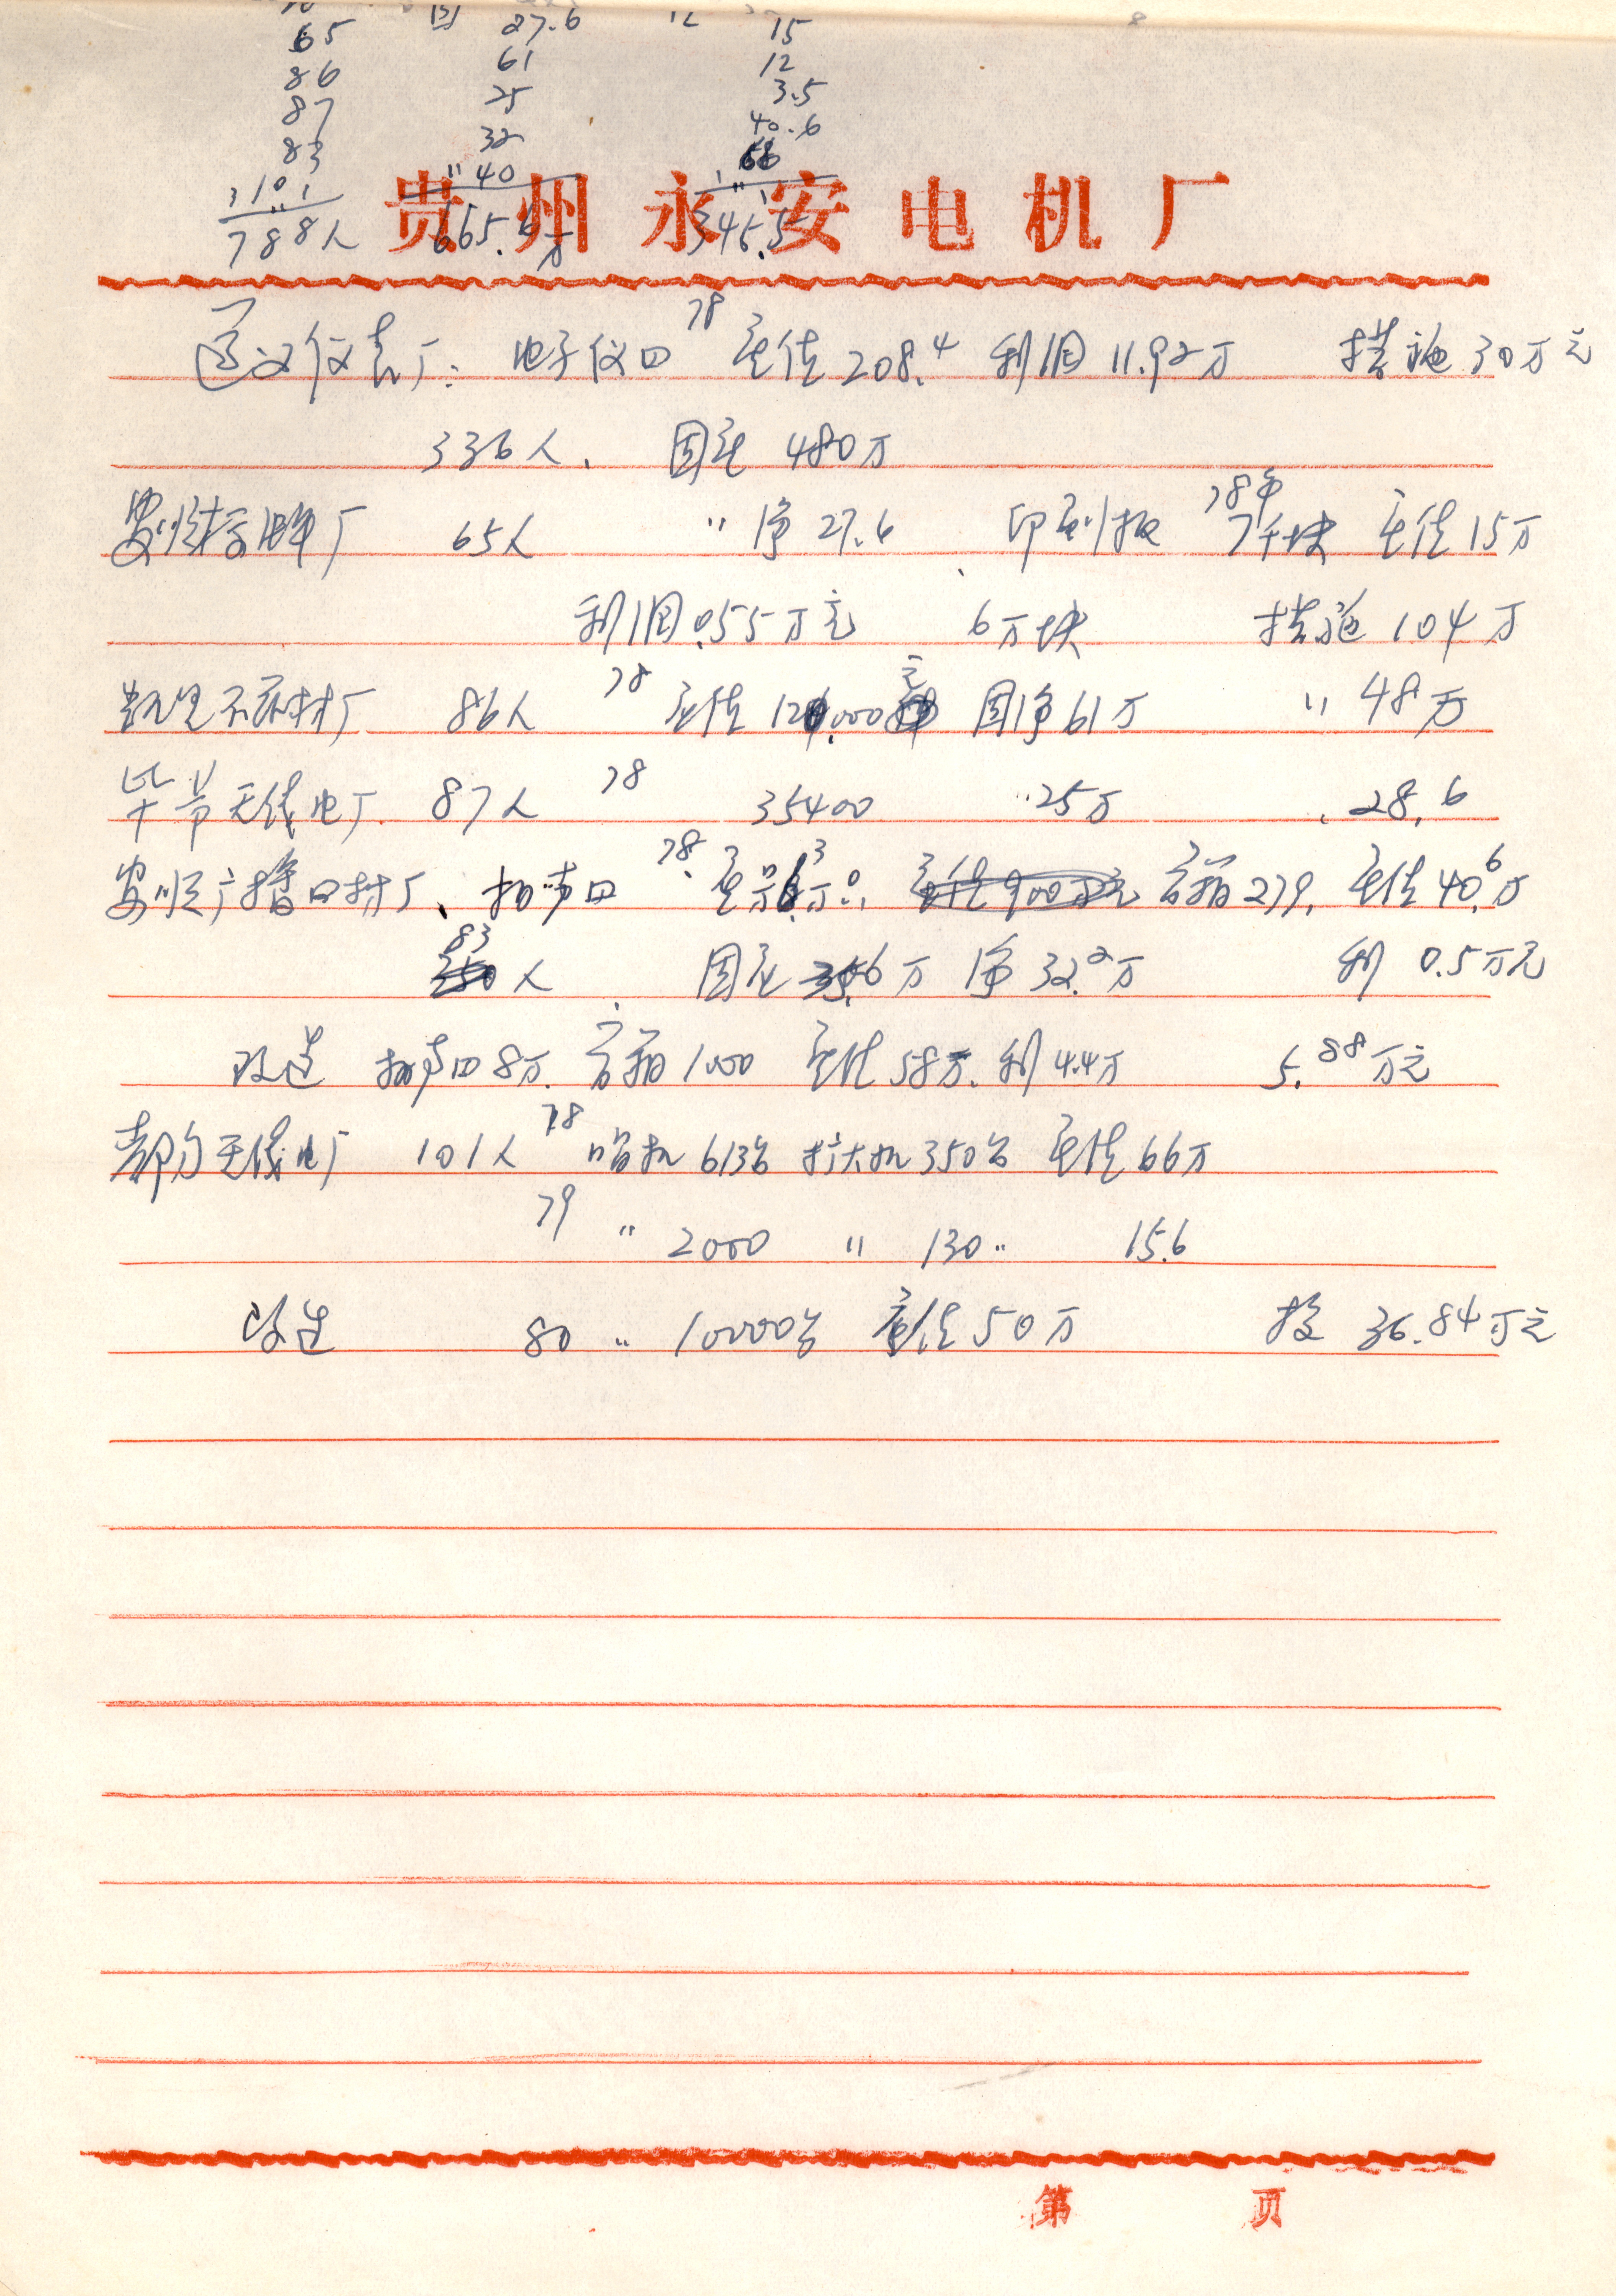 65 固 27.6 15
86 61 12
87 25 3.5
83 32 40.6
101 40 66
788人 665.6万 345.5
贵州永安电机厂
遵义仪表厂: 电子仪四 78 产值208.4 利润11.92万 措施30万元
336人、 固产 480万
安顺 厂 65人 〃净27.6 印刷板 78年 7千块 产值15万
利润0.55万元 6万块 措施104万
凯里 材厂 86人 78 产值 120,000元 固净61万 〃48万
毕节无线电厂 87人 78 35400 〃25万 28.6
安顺广播四材厂、扬声四 78 产 3万 音箱279, 产值40.6万
83人 固产 6万 净32.2万 利 0.5万元
改造 扬声四8万 音箱1000 产值58万 利4.4万 5.88万元
都匀无线电厂 101人 78 收扩机613台 扩大机350台 产值66万
79 〃 2000 〃 130 〃 15.6
改造 80 〃 10000台 产值50万 投 36.84万元
第 页